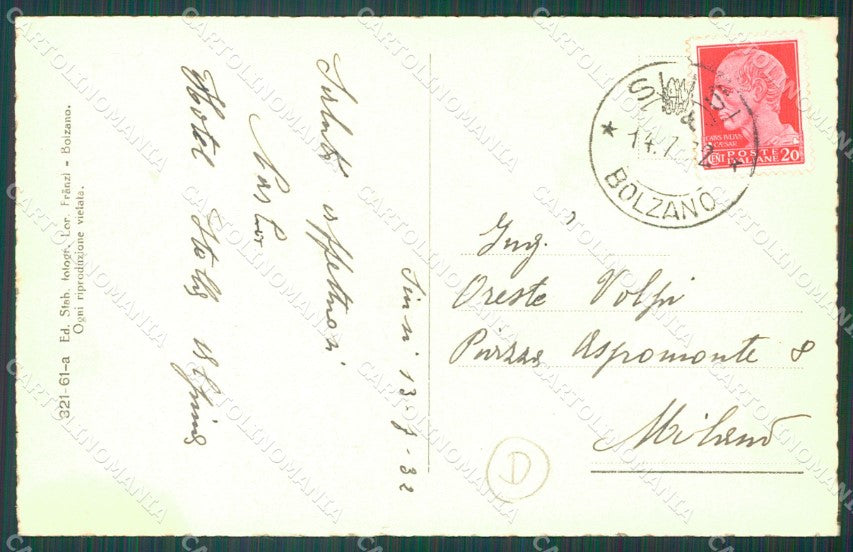 321-61-a Ed. Stab. fotogr. Lor. Fränzl - Bolzano.
Ogni riproduzione vietata.
Hotel
Saluti affettuosi
Siusi 13-7-32
SIUSI
14.7.32
BOLZANO
CAIVS IVLIVS
CAESAR
POSTE
ITALIANE
CENT 20
Ing.
Oreste Volpi
Piazza Aspromonte 8
Milano
D
CARTOLINOMANIA